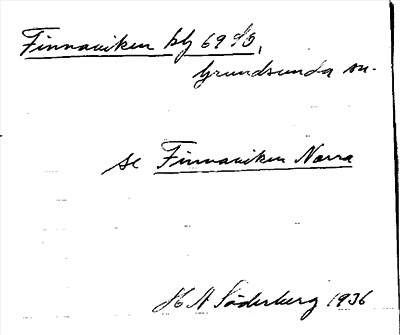 Finnaviken kbj 69 SO,
Grundsunda sn.
se Finnaviken Norra
H A Söderberg 1936